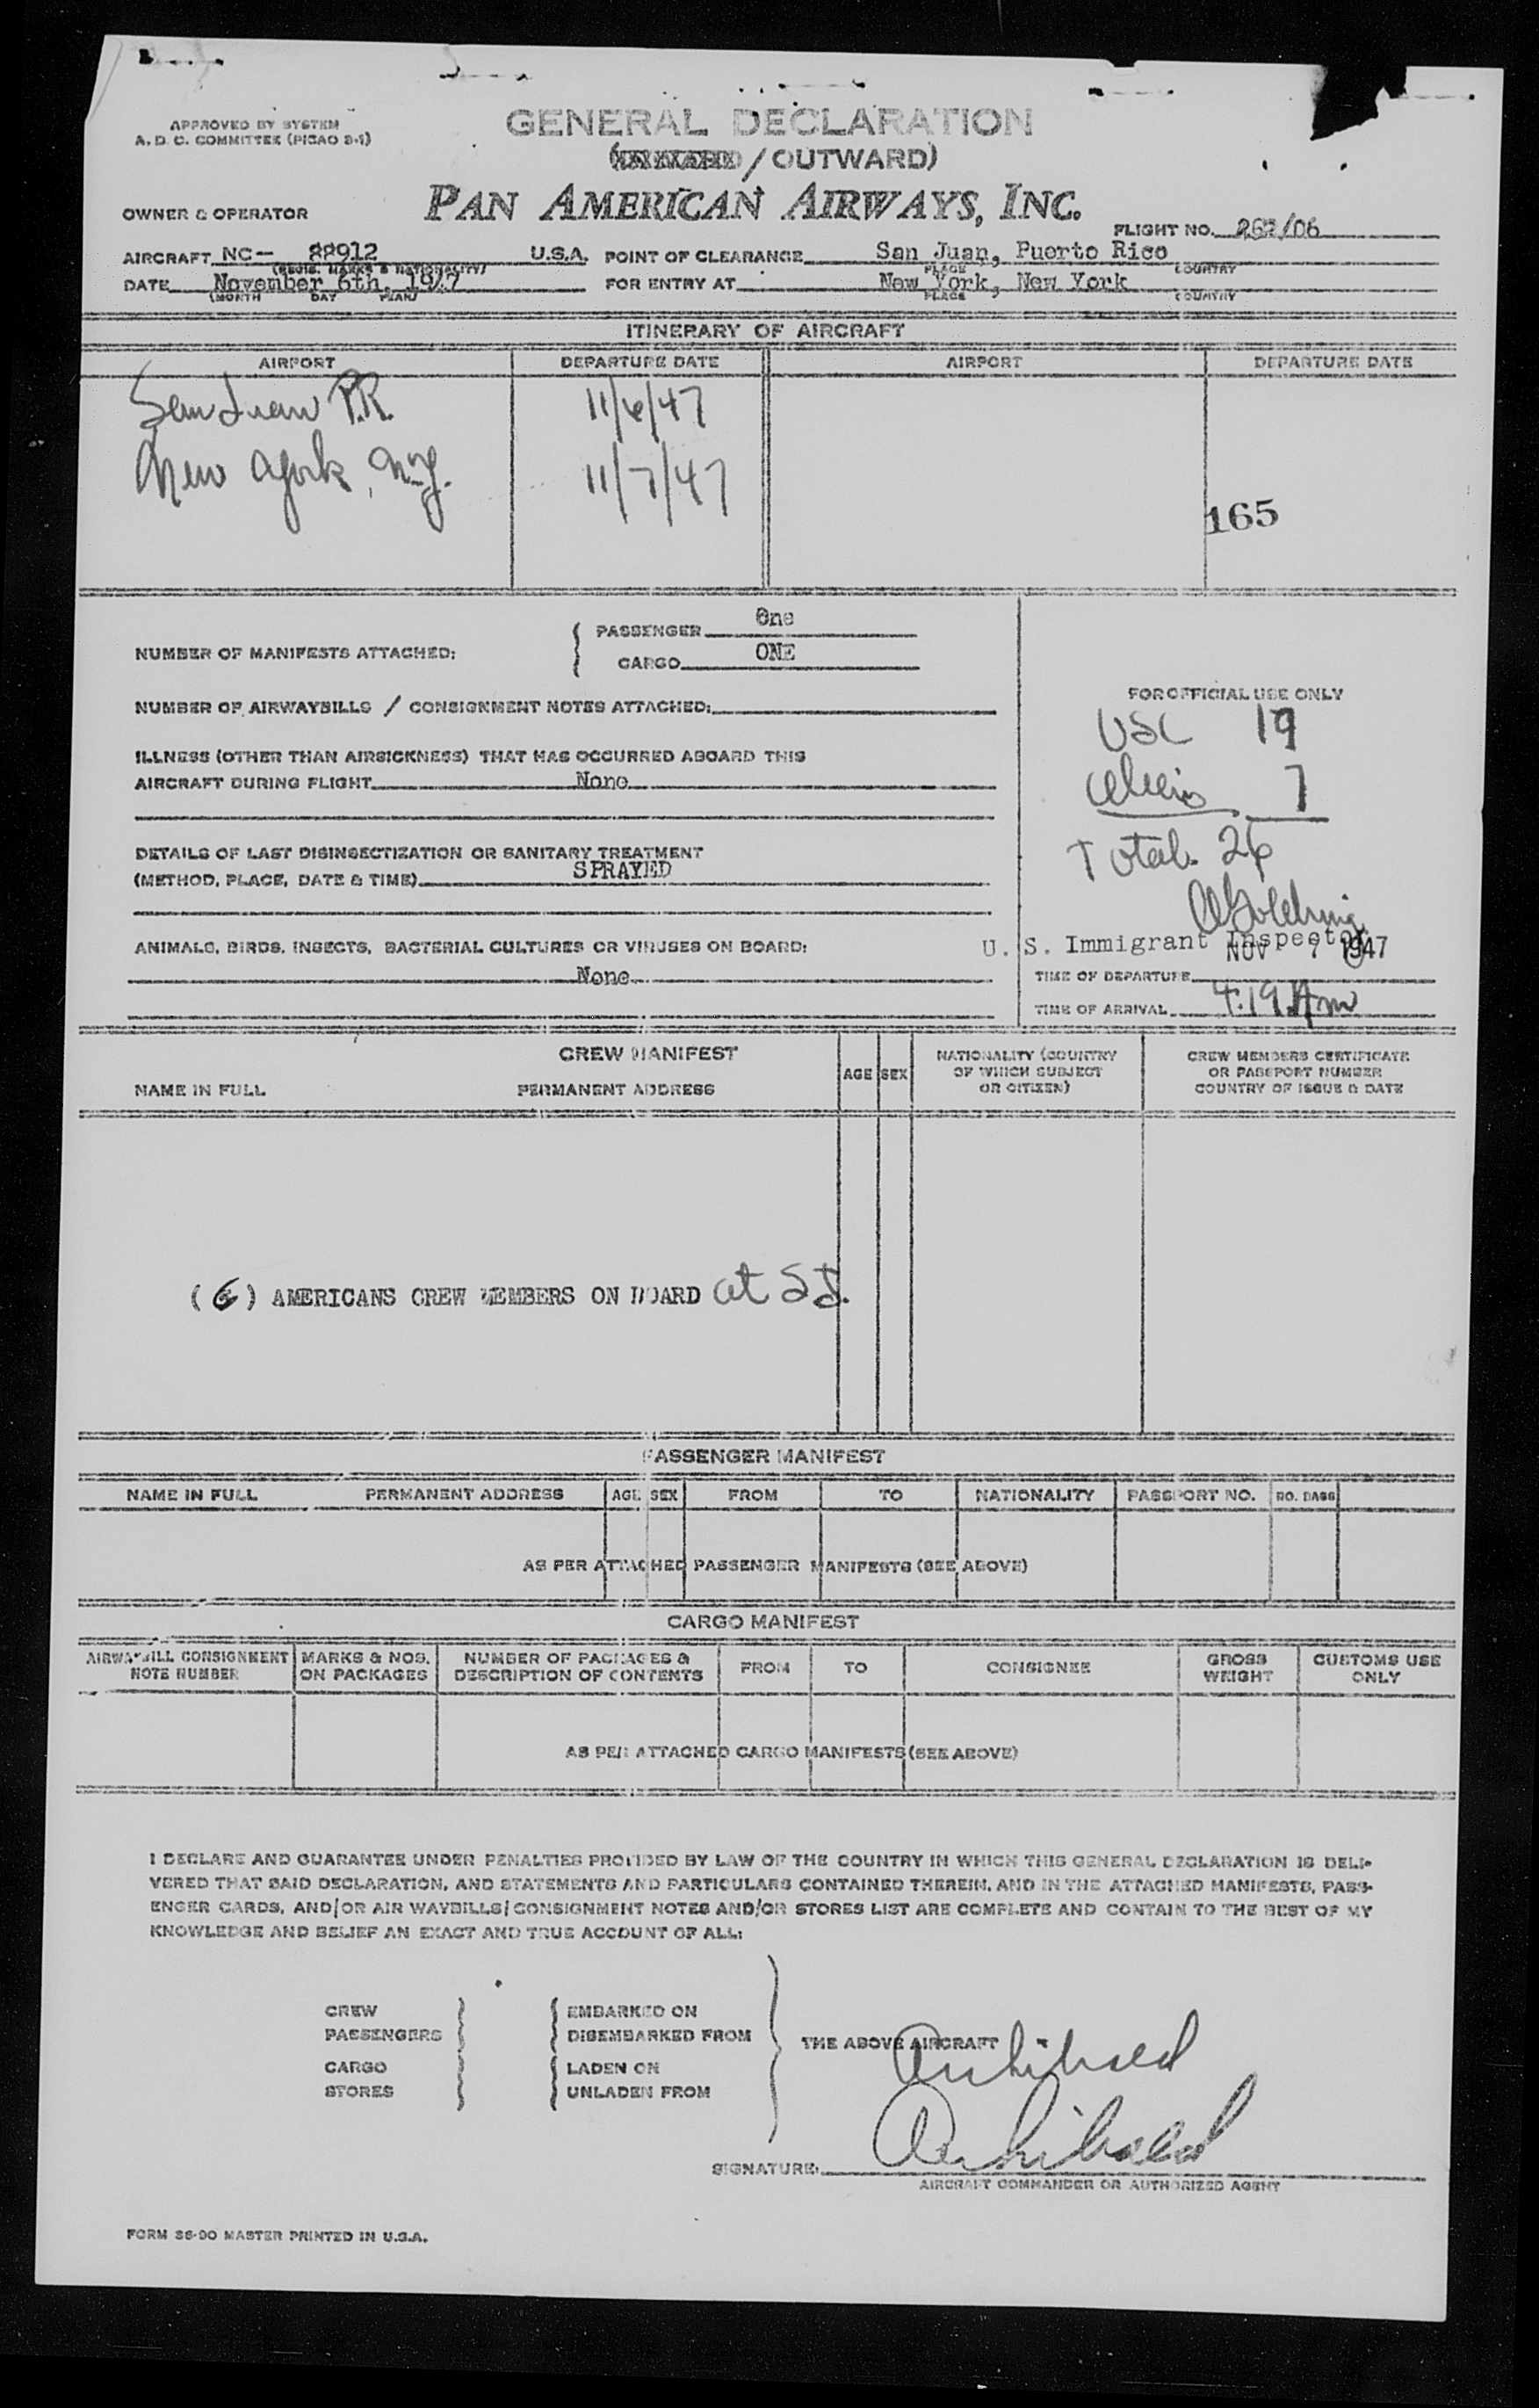 APPROVED BY SYSTEM
A. D. C. COMMITTEE (PICAO 2-1)
GENERAL DECLARATION
(INWARD / OUTWARD)
PAN AMERICAN AIRWAYS, INC.
OWNER & OPERATOR
FLIGHT NO.
AIRCRAFT NC- 88912 U.S.A. POINT OF CLEARANCE San Juan, Puerto Rico
(REGIS. MARKS & NATIONALITY) PLACE COUNTRY
DATE November 6th, 1947 FOR ENTRY AT New York, New York
(MONTH DAY YEAR) PLACE COUNTRY
ITINERARY OF AIRCRAFT
AIRPORT DEPARTURE DATE AIRPORT DEPARTURE DATE
San Juan P.R. 11/6/47
New York, N.Y. 11/7/47
165
NUMBER OF MANIFESTS ATTACHED:
PASSENGER One
CARGO ONE
NUMBER OF AIRWAYBILLS / CONSIGNMENT NOTES ATTACHED:
ILLNESS (OTHER THAN AIRSICKNESS) THAT HAS OCCURRED ABOARD THIS
AIRCRAFT DURING FLIGHT None
DETAILS OF LAST DISINSECTIZATION OR SANITARY TREATMENT
(METHOD, PLACE, DATE & TIME) SPRAYED
ANIMALS, BIRDS, INSECTS, BACTERIAL CULTURES OR VIRUSES ON BOARD:
None
FOR OFFICIAL USE ONLY
USC 19
Aliens 7
Total 26
U. S. Immigrant Inspector
NOV 7 1947
TIME OF DEPARTURE
TIME OF ARRIVAL 4:19 Am
CREW MANIFEST
NAME IN FULL PERMANENT ADDRESS
AGE SEX
NATIONALITY (COUNTRY
OF WHICH SUBJECT
OR CITIZEN)
CREW MEMBERS CERTIFICATE
OR PASSPORT NUMBER
COUNTRY OF ISSUE & DATE
(6) AMERICANS CREW MEMBERS ON BOARD at SJ.
PASSENGER MANIFEST
NAME IN FULL PERMANENT ADDRESS AGE SEX FROM TO NATIONALITY PASSPORT NO. NO. BAGS
AS PER ATTACHED PASSENGER MANIFESTS (SEE ABOVE)
CARGO MANIFEST
AIRWAYBILL CONSIGNMENT
NOTE NUMBER
MARKS & NOS.
ON PACKAGES
NUMBER OF PACKAGES &
DESCRIPTION OF CONTENTS
FROM TO CONSIGNEE
GROSS
WEIGHT
CUSTOMS USE
ONLY
AS PER ATTACHED CARGO MANIFESTS (SEE ABOVE)
I DECLARE AND GUARANTEE UNDER PENALTIES PROVIDED BY LAW OF THE COUNTRY IN WHICH THIS GENERAL DECLARATION IS DELI-
VERED THAT SAID DECLARATION, AND STATEMENTS AND PARTICULARS CONTAINED THEREIN, AND IN THE ATTACHED MANIFESTS, PASS-
ENGER CARDS, AND/OR AIR WAYBILLS/CONSIGNMENT NOTES AND/OR STORES LIST ARE COMPLETE AND CONTAIN TO THE BEST OF MY
KNOWLEDGE AND BELIEF AN EXACT AND TRUE ACCOUNT OF ALL:
CREW EMBARKED ON
PASSENGERS DISEMBARKED FROM
THE ABOVE AIRCRAFT
CARGO LADEN ON
STORES UNLADEN FROM
SIGNATURE:
AIRCRAFT COMMANDER OR AUTHORIZED AGENT
FORM 36-90 MASTER PRINTED IN U.S.A.